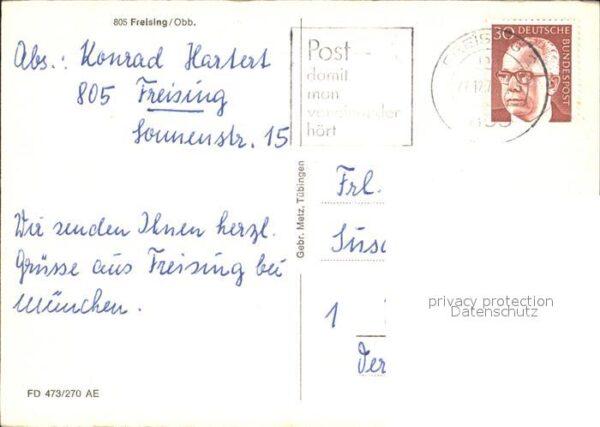 805 Freising/Obb.
Abs.: Konrad Hartert
805 Freising
Sonnenstr. 15
Post
damit
man
voneinander
hört
30
DEUTSCHE
BUNDESPOST
Wir senden Ihnen herzl.
Grüsse aus Freising bei
München.
FD 473/270 AE
Gebr. Metz, Tübingen
Frl.
1
privacy protection
Datenschutz